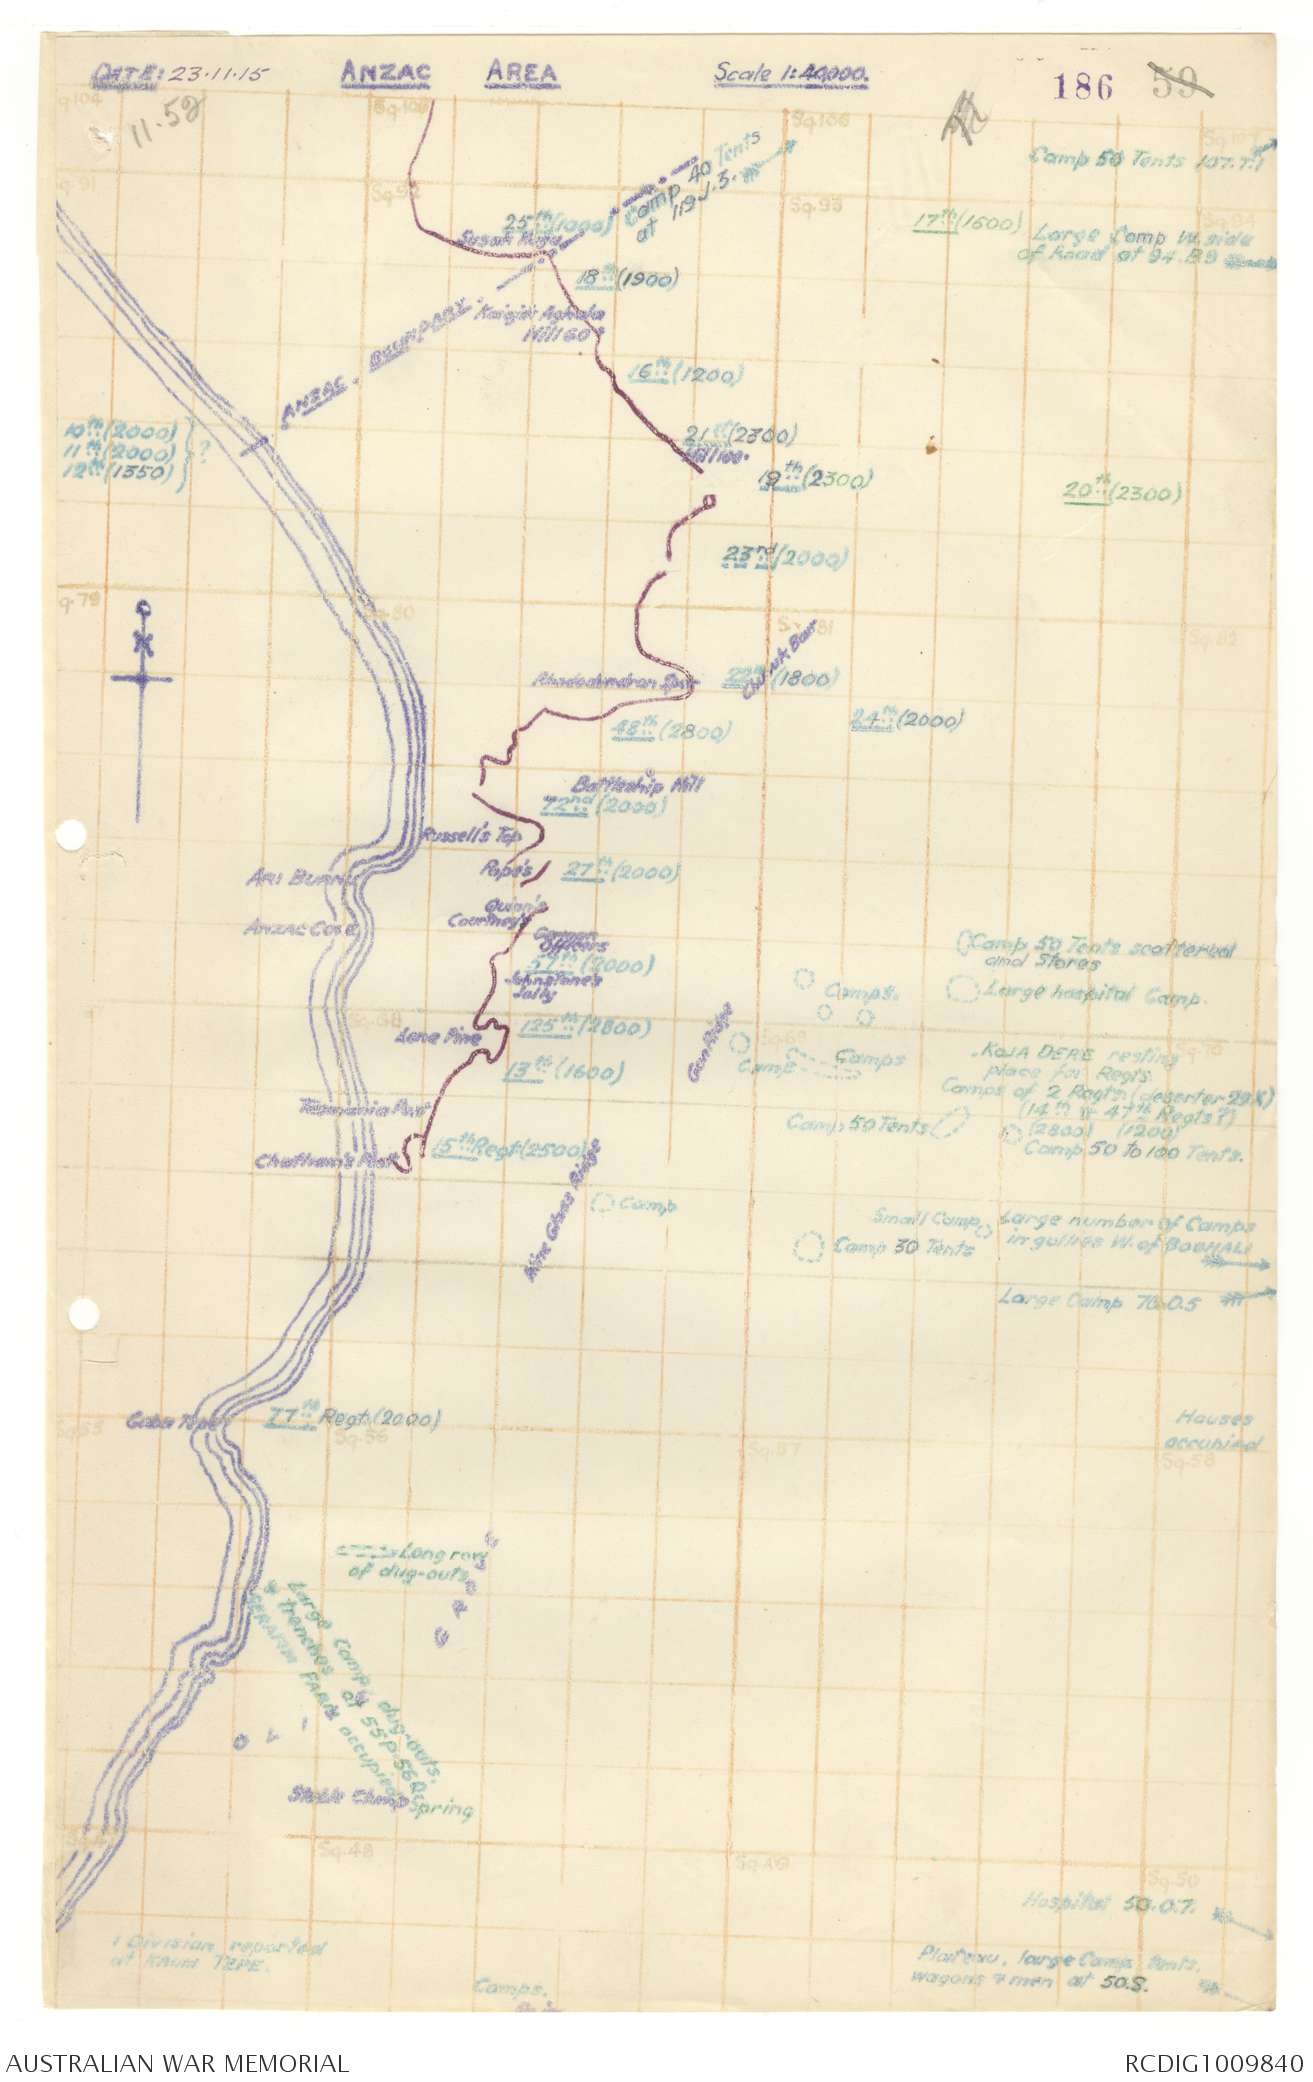 DATE: 23.11.15
ANZAC AREA
Scale 1:40,000.
186
59
11.52
Sq.93
Camp 50 Tents 107.T.1
Camp 40 Tents
at 119.J.5.
25th (1000)
Susak Kuyu
17th (1600)
Large Camp W. side
of Road at 94.B9
18th (1900)
Kaiajik Aghala
Hill 60
ANZAC. BOUNDARY.
16th (1200)
10th (2000)
11th (2000)
12th (1350)
?
21st (2300)
Hill 100
19th (2300)
20th (2300)
23rd (2000)
Sq.80
Sq.81
Sq.82
Chunuk Bair
Rhododendron Spur
(1800)
24th (2000)
48th (2800)
Battleship Hill
72nd (2000)
Russell's Top
Pope's
27th (2000)
ARI BURNU
Quinn's
Courtney's
ANZAC Cove
German
Officers
57th (2000)
Johnstone's
Jolly
Camp 50 Tents scattered
and Stores
Camps.
Large hospital Camp.
Sq.68
Lone Pine
125th (2800)
Gun Ridge
Sq.69
Sq.70
Camp
Camps
KOJA DERE resting
place for Regts.
Camps of 2 Regts. (deserter 29.X)
(14th & 47th Regts?)
(2800) (1200)
Camp 50 to 100 Tents.
13th (1600)
Tasmania Post
Camp 50 Tents
Chatham's Post
15th Regt (2500)
Pine Ridge
Camp
Small Camp
Large number of Camps
in gullies W. of BOGHALI
Camp 30 Tents
Large Camp 70.0.5
Gaba Tepe
77th Regt. (2000)
Sq.56
Sq.57
Sq.58
Houses
occupied
Long row
of dug-outs
Large Camp, dug-outs,
& trenches at 55P.56Q.
SERAFIM FARM occupied
Spring
Stable Clump
Sq.48
Sq.49
Sq.50
Hospital 50.0.7.
1 Division reported
at KAUM TEPE.
Camps.
Plateau, large Camp tents,
wagons & men at 50.S.
AUSTRALIAN WAR MEMORIAL
RCDIG1009840